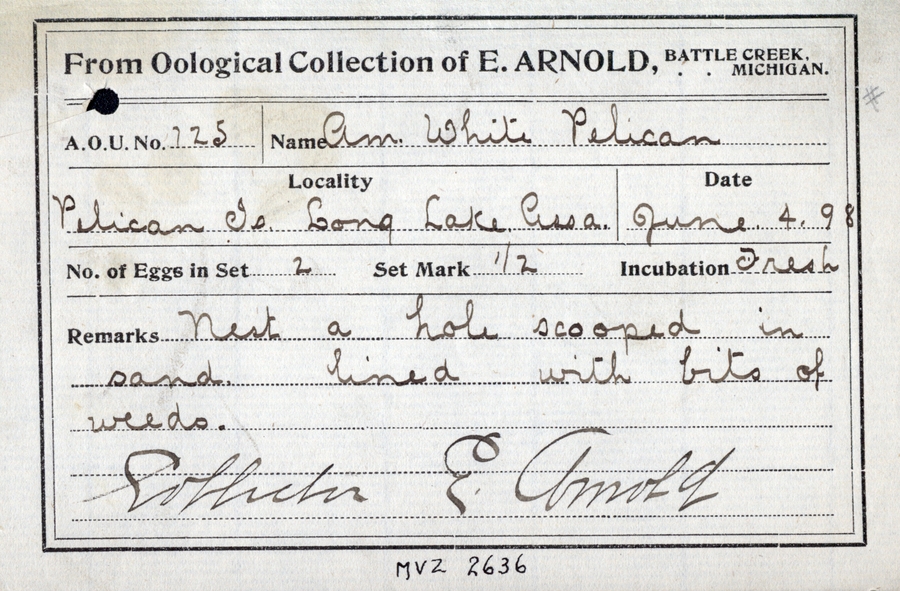 From Oological Collection of E. ARNOLD, BATTLE CREEK, MICHIGAN.
A.O.U. No. 125 Name Am. White Pelican
Locality Date
Pelican Is. Long Lake Assa. June 4. 98
No. of Eggs in Set 2 Set Mark 1/2 Incubation Fresh
Remarks Nest a hole scooped in
sand. lined with bits of
weeds.
Collector E. Arnold
MVZ 2636
#